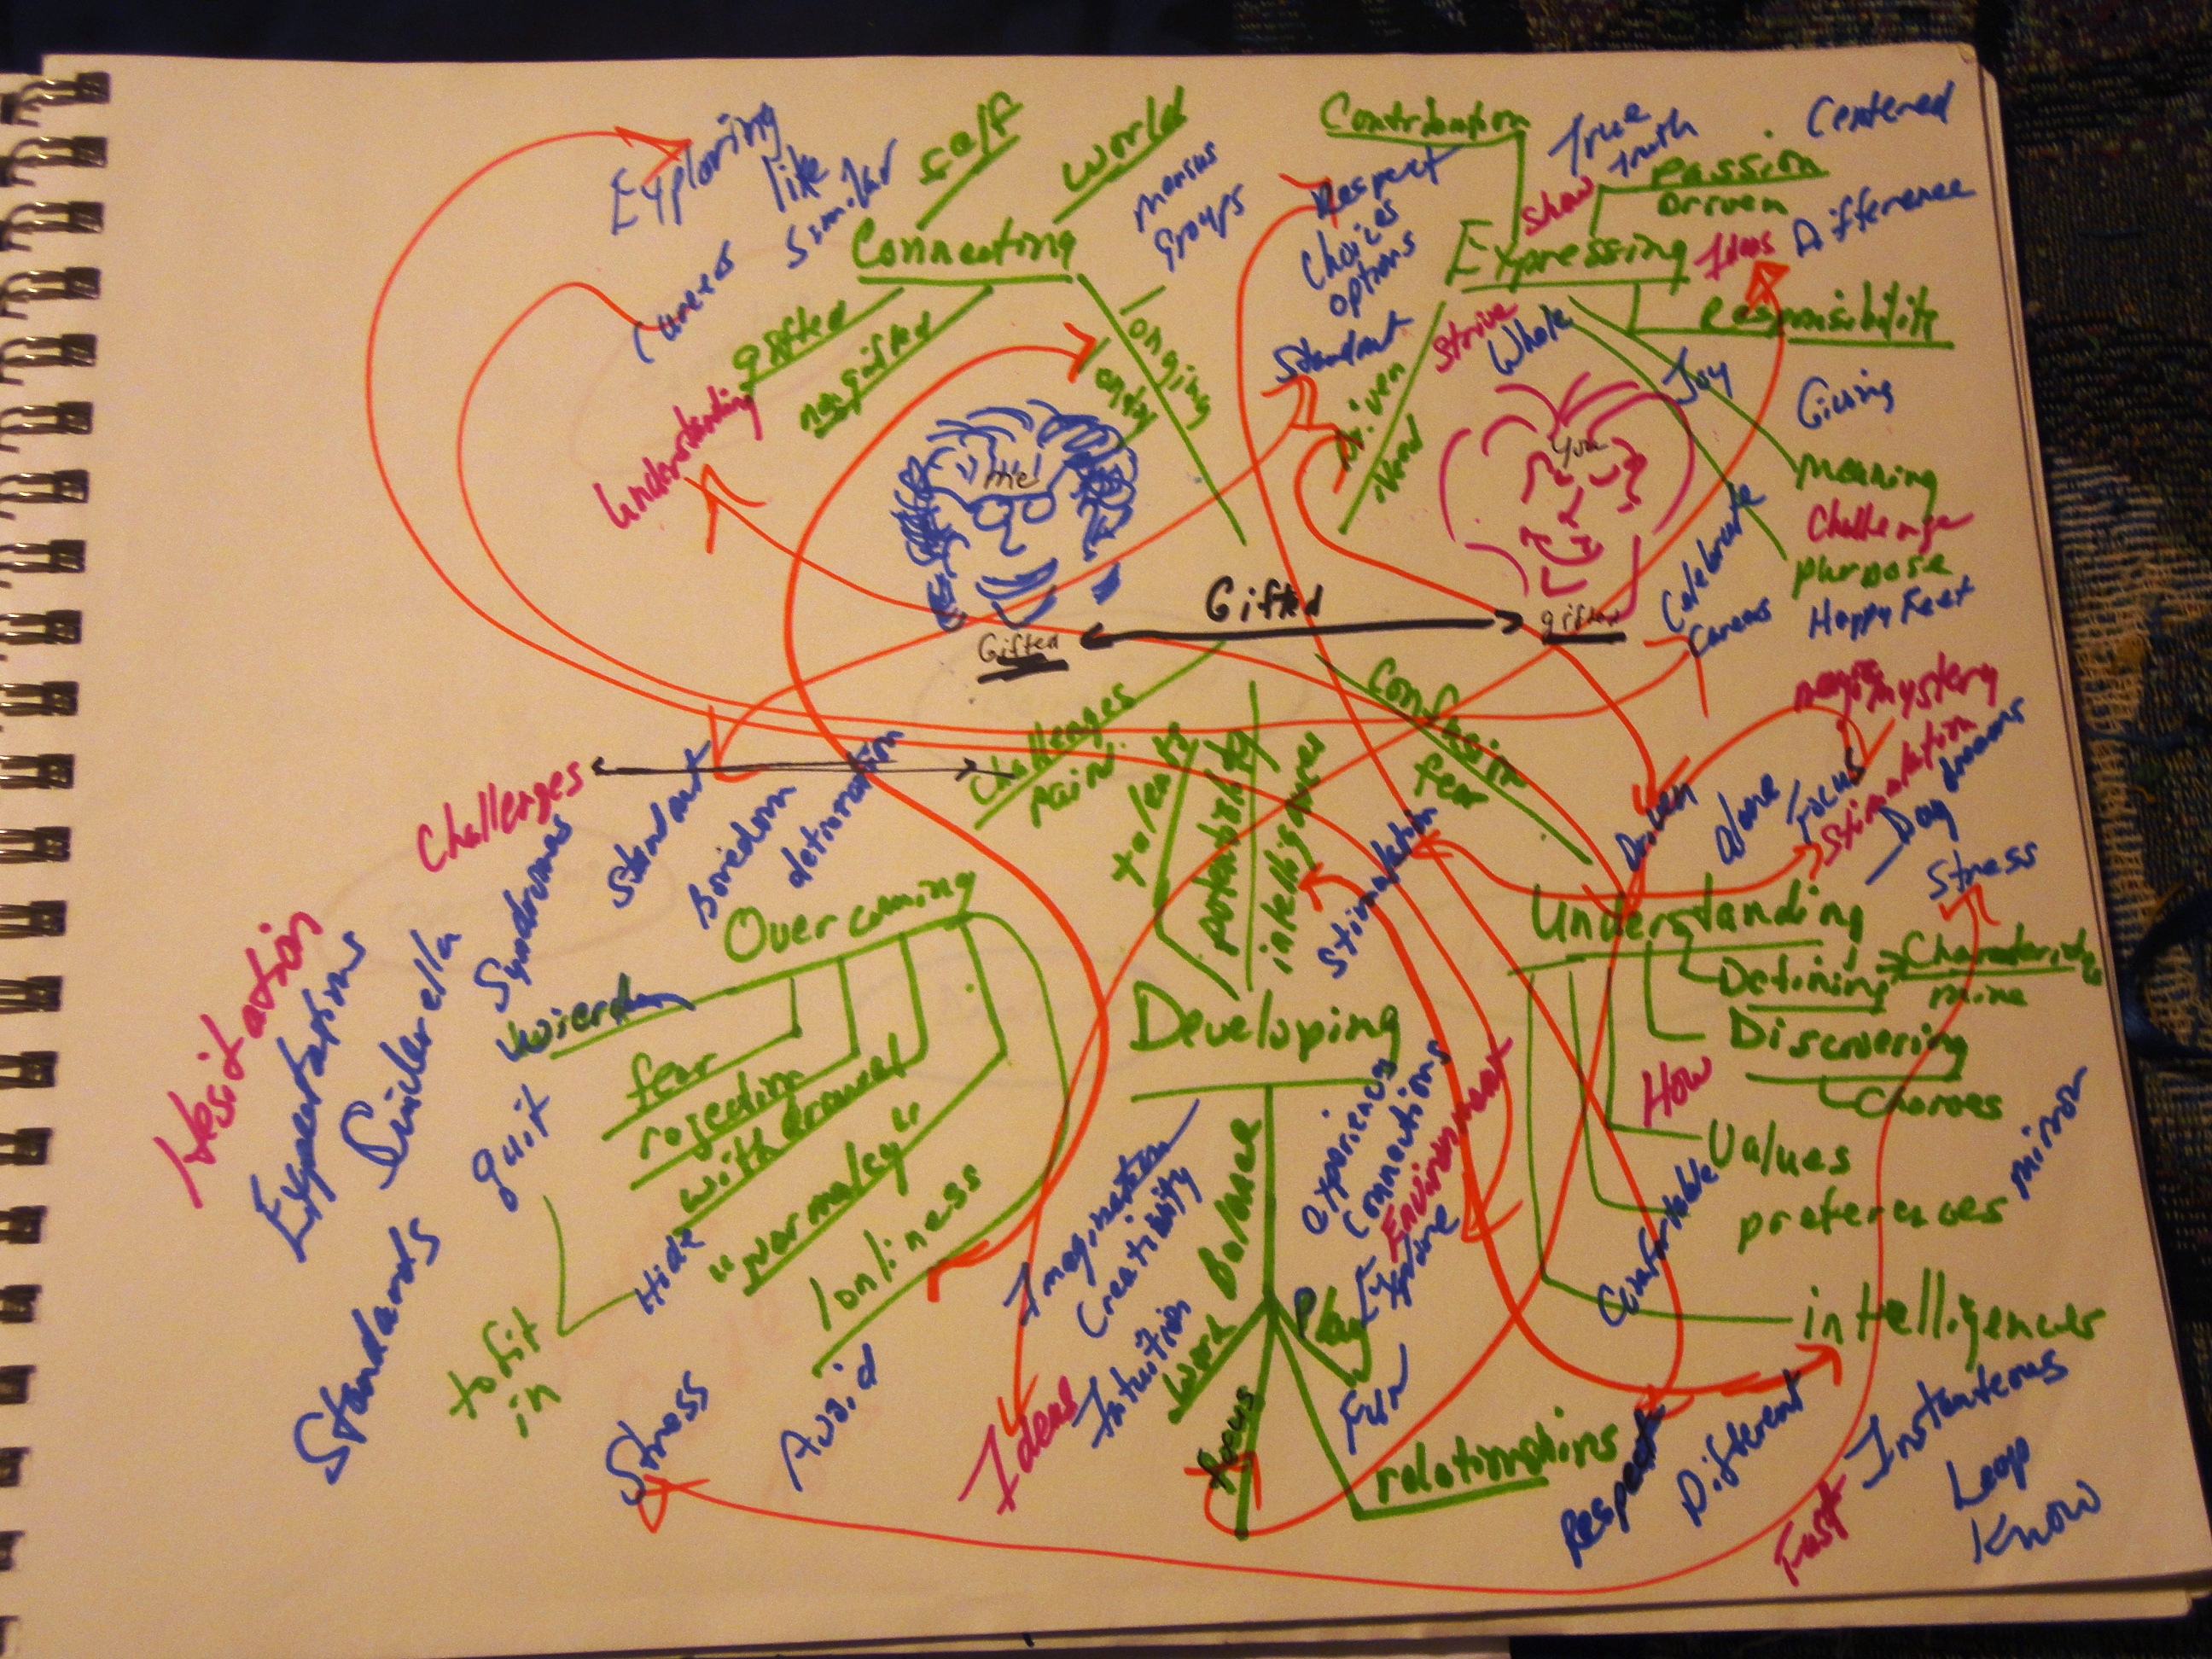 Exploring
like
Similar
self
world
Connecting
mensas
Groups
gifted
non gifted
Understanding
ongoing
Contribution
True
truth
Centered
Respect
Choices
options
Standout
Show
Passion
Driven
Difference
Expressing
Ideas
Responsibility
Strive
Whole
Joy
Giving
Driven
Need
meaning
Challenge
purpose
Happy Feet
Celebrate
me
You
Gifted
Gifted
gifted
Challenges
Challenges
pain
Confusion
fear
talents
intelligences
Stimulation
magic mystery
Stimulation
Day
dreams
Driven
alone
Focus
Stress
Standout
Boredom
Syndromes
Overcoming
Hesitation
Expectations
Standards
quit
to fit
in
Hide
fear
rejection
withdrawel
"normalcy"
lonliness
Avoid
Stress
Developing
Imagination
Creativity
Intuition
Ideas
Balance
Work
Play
focus
Fun
relationships
experiences
Connections
Environment
Explore
Understanding
Defining
Characteristics
mine
Discovering
Choices
How
Values
preferences
mirror
Comfortable
intelligences
Respect
Different
Instanteous
Leap
Know
Fast